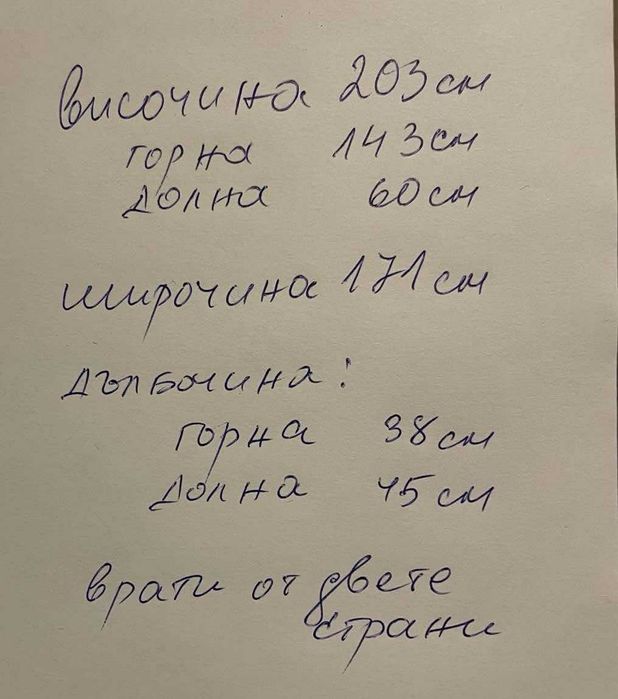 височина 203 см
горна 143 см
долна 60 см
широчина 171 см
дълбочина:
горна 38 см
долна 45 см
врати от двете
страни